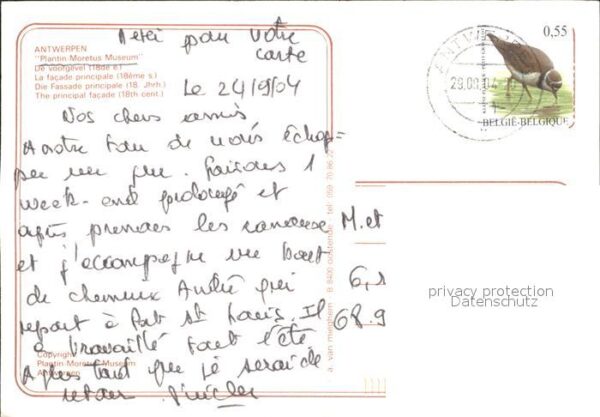 Merci pour votre
carte
ANTWERPEN
"Plantin-Moretus Museum"
De voorgevel (18de e.)
La façade principale (18ème s.)
Die Fassade principale (18. Jhrh.)
The principal façade (18th cent.)
Le 24/9/04
Nos chers amis
A notre tour de nous échap=
per un peu. Faisons 1
week-end prolongé et
après prenons les vacances
et j'accompagne un bout
de chemin André qui
repart à Port St Louis. Il
a travaillé tout l'été
A plus tard que je serai de
retour
Copyright
Plantin-Moretus Museum
Antwerpen
a. van mieghem B 8400 oostende tel. 059
ANTW
29.09.04
0,55
BELGIË-BELGIQUE
M. et
68.9
privacy protection
Datenschutz